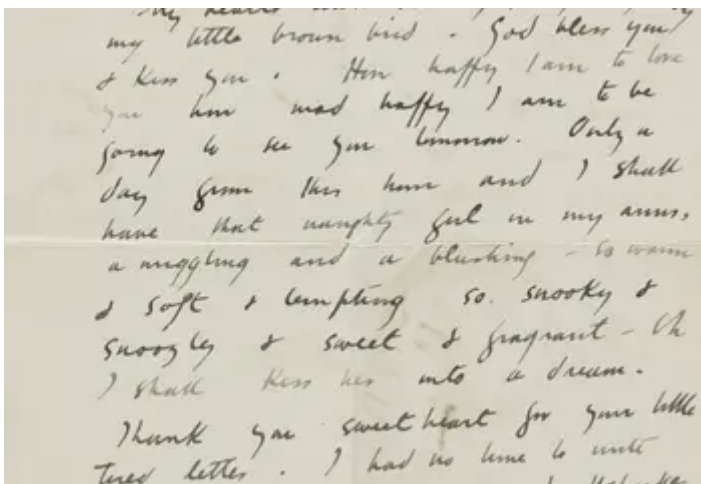 my little brown bird. God bless you
& kiss you. How happy I am to love
you how mad happy I am to be
going to see you tomorrow. Only a
day from this hour and I shall
have that naughty girl in my arms,
a niggling and a blushing – so warm
& soft & tempting so. snooky &
snoozley & sweet & fragrant – Oh
I shall kiss her into a dream.
Thank you sweetheart for your little
tired letter. I had no time to write